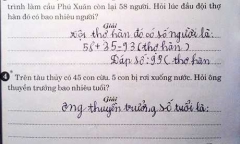 trình làm cầu Phú Xuân còn lại 58 người. Hỏi lúc đầu đội thợ
hàn đó có bao nhiêu người?
Giải
Đội thợ hàn đó có số người là:
58 + 35 = 93 (thợ hàn)
Đáp số: 93 thợ hàn
4 Trên tàu thủy có 45 con cừu. 5 con bị rơi xuống nước. Hỏi ông
thuyền trưởng bao nhiêu tuổi?
Giải
Ông thuyền trưởng số tuổi là: